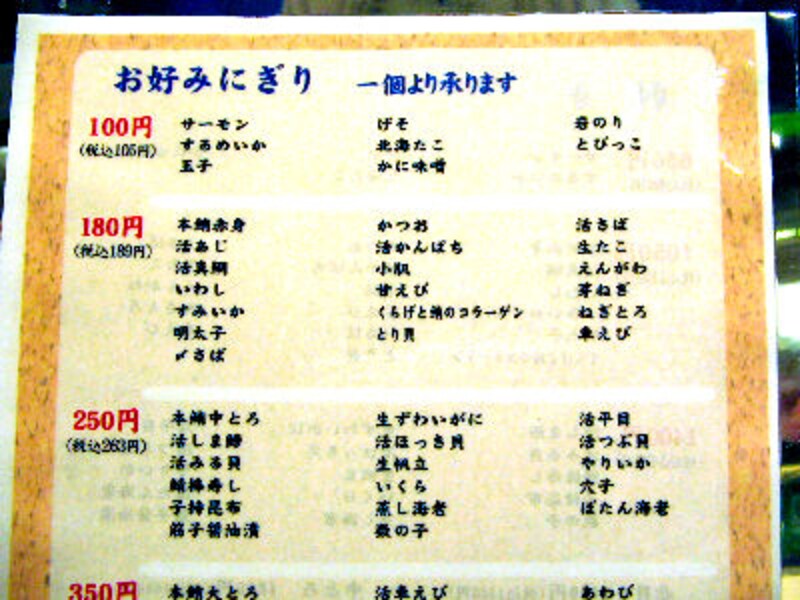 お好みにぎり 一個より承ります
100円 サーモン げそ 岩のり
(税込105円) するめいか 北海たこ とびっこ
玉子 かに味噌
180円 本鮪赤身 かつお 活さば
(税込189円) 活あじ 活かんぱち 生たこ
活真鯛 小肌 えんがわ
いわし 甘えび 芽ねぎ
すみいか くらげと鮪のコラーゲン ねぎとろ
明太子 とり貝 車えび
〆さば
250円 本鮪中とろ 生ずわいがに 活平目
(税込263円) 活しま鯵 活ほっき貝 活つぶ貝
活みる貝 生帆立 やりいか
鯖棒寿し いくら 穴子
子持昆布 蒸し海老 ぼたん海老
筋子醤油漬 数の子
350円 本鮪大とろ 活車えび あわび